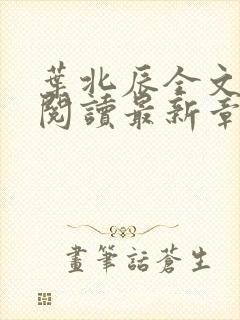 葉北辰全文
閱讀最新章
畫筆話蒼生